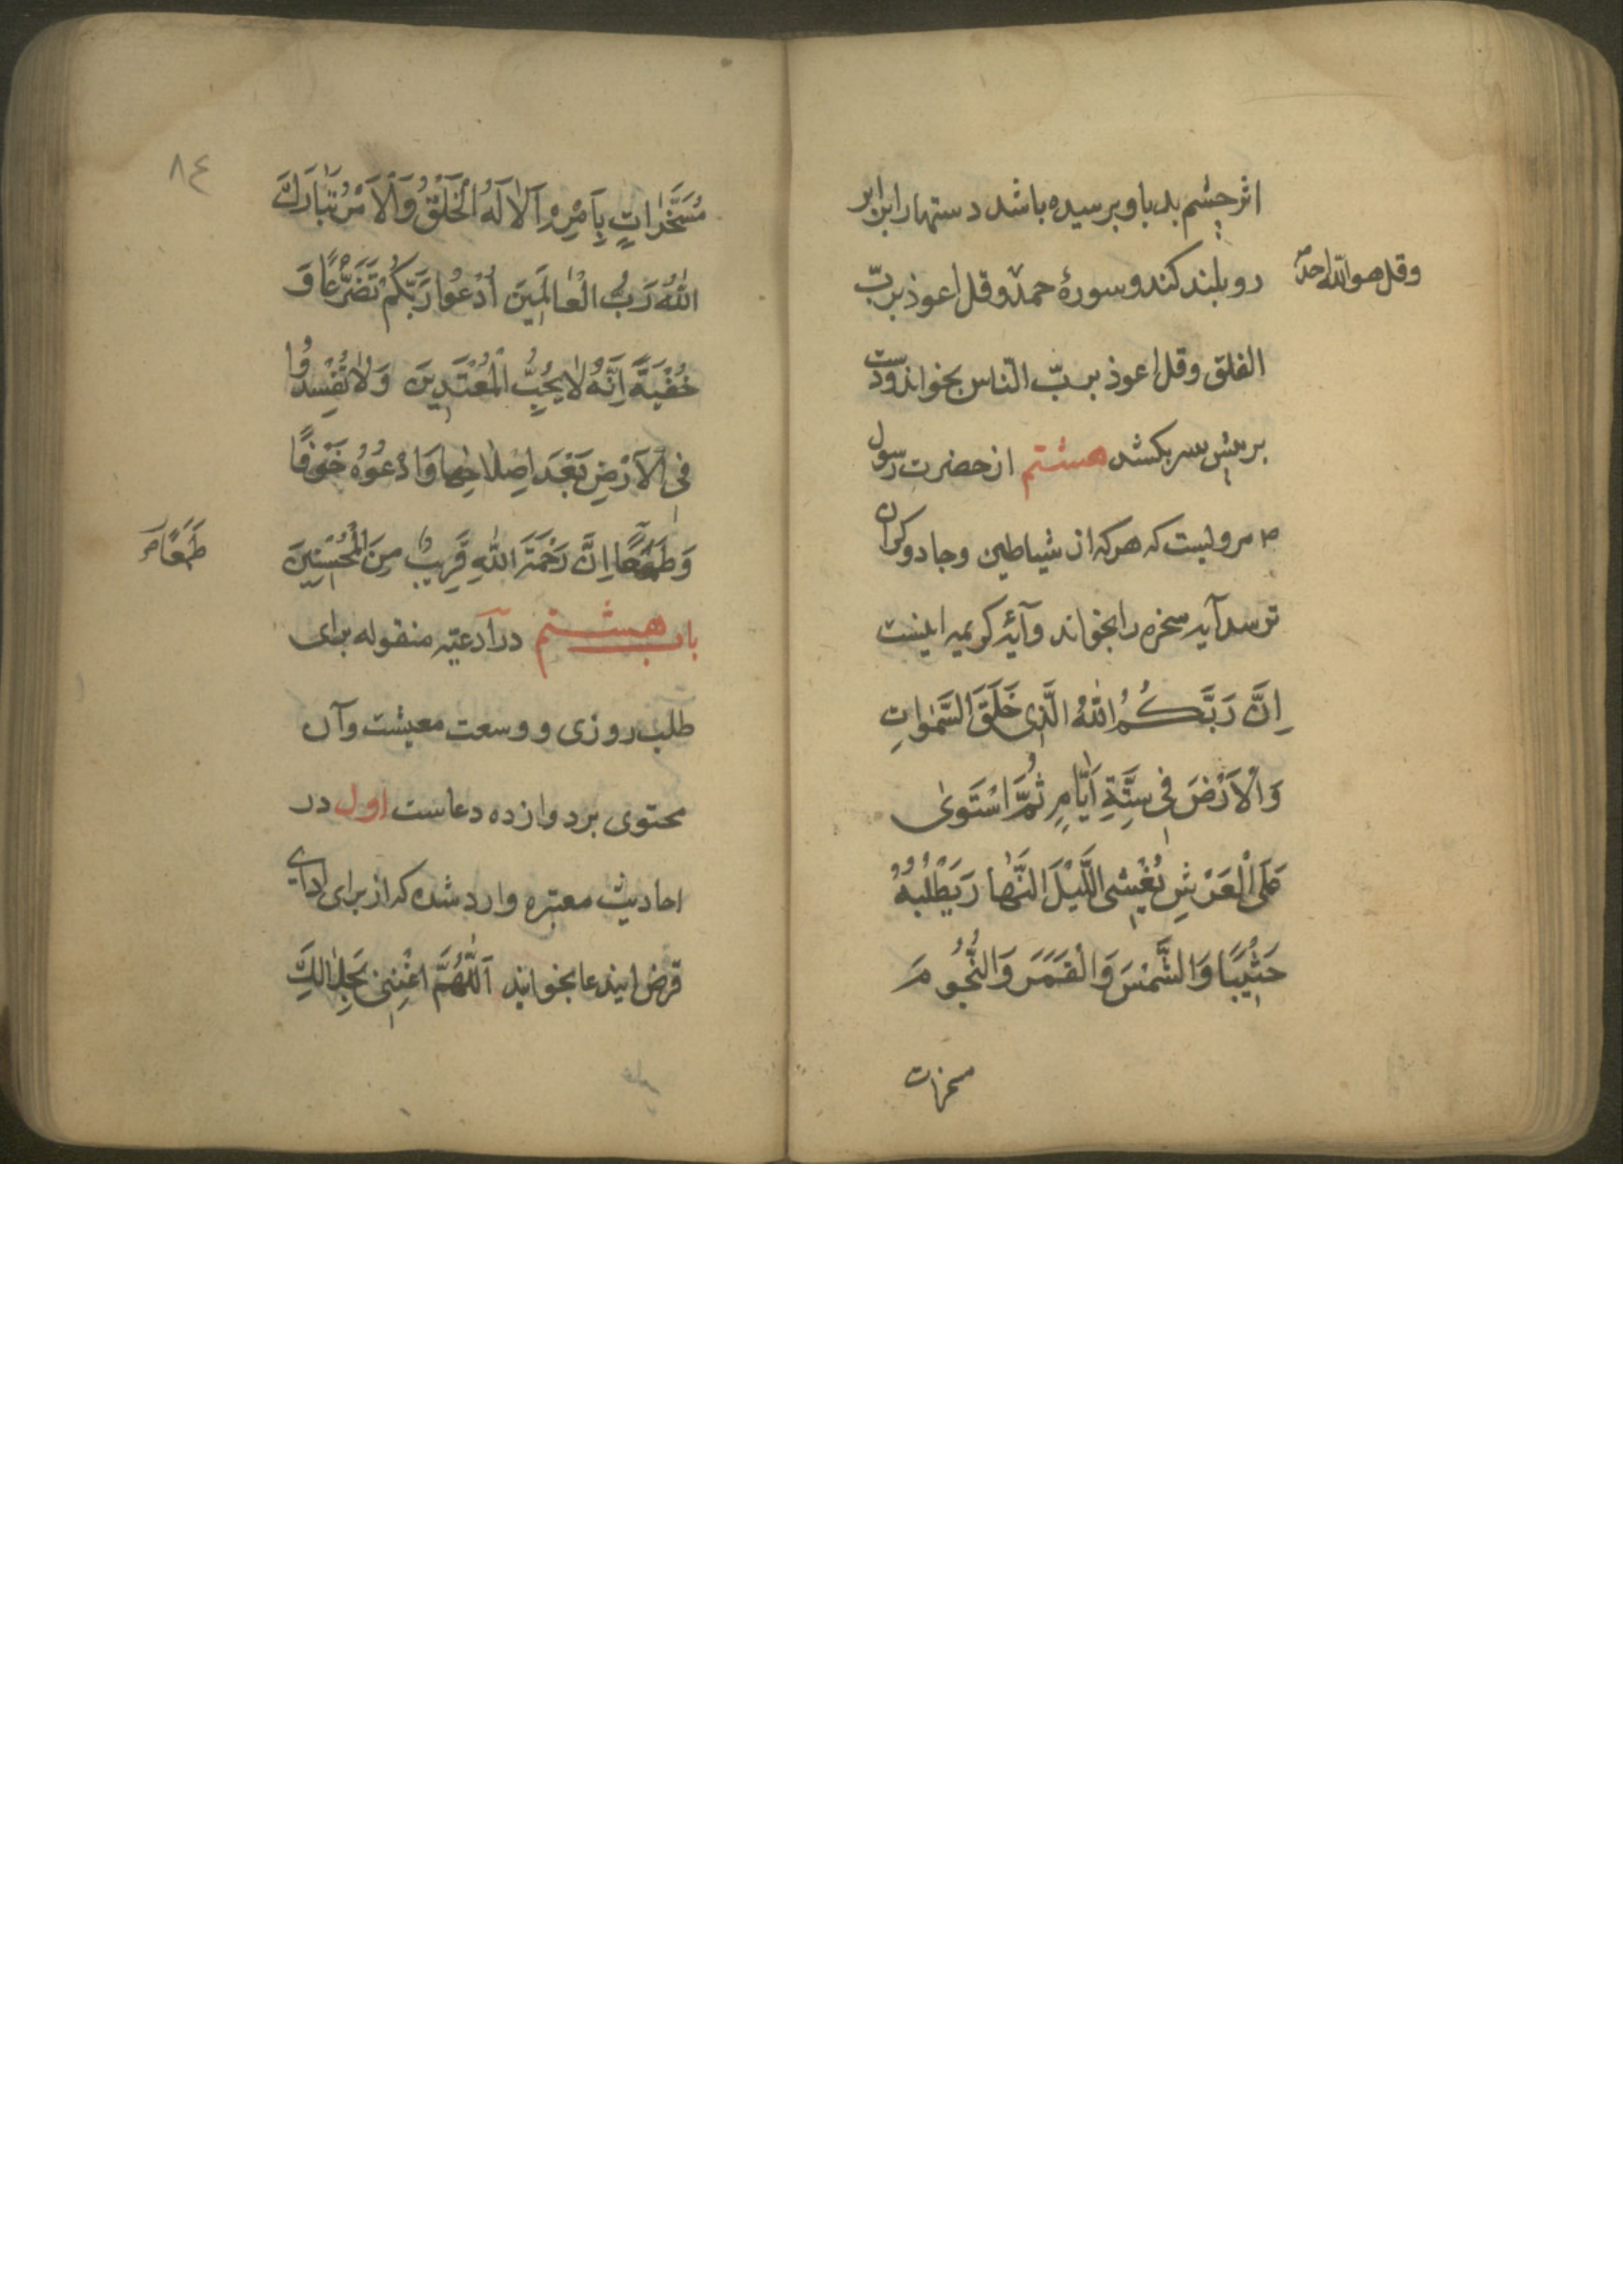 اثر چشم بد باو برسیده باشد دستها را برابر
رو بلند کند و سورهٔ حمد و قل اعوذ بربّ
وقل هو الله احد صح
الفلق و قل اعوذ بربّ النّاس بخواند و دست
بر پیش سر بکشد هشتم از حضرت رسول
ص مرویست که هر که از شیاطین و جادوکران
ترسد آیه سخره را بخواند و آیهٔ کریمه اینست
اِنَّ رَبَّكُمُ اللّٰهُ الَّذِی خَلَقَ السَّمٰوٰاتِ
وَالْاَرْضَ فِی سِتَّةِ اَیّٰامٍ ثُمَّ اسْتَوٰی
عَلَی الْعَرْشِ یُغْشِی اللَّیْلَ النَّهٰارَ یَطْلُبُهُ
حَثِیثًا وَالشَّمْسَ وَالْقَمَرَ وَالنُّجُومَ
مسخرات
٨٤
مُسَخَّرٰاتٍ بِاَمْرِهِ اَلٰا لَهُ الْخَلْقُ وَالْاَمْرُ تَبٰارَكَ
اللّٰهُ رَبُّ الْعٰالَمِینَ اُدْعُوا رَبَّكُمْ تَضَرُّعًا وَ
خُفْیَةً اِنَّهُ لٰا یُحِبُّ الْمُعْتَدِینَ وَلٰا تُفْسِدُوا
فِی الْاَرْضِ بَعْدَ اِصْلٰاحِهٰا وَادْعُوهُ خَوْفًا
وَطَمَعًا اِنَّ رَحْمَتَ اللّٰهِ قَرِیبٌ مِنَ الْمُحْسِنِینَ
طَمَعًا صح
باب هشتم در ادعیّه منقوله برای
طلب روزی و وسعت معیشت و آن
محتوی بر دوازده دعاست اول در
احادیث معتبره وارد شده که از برای ادای
قرض ایندعا بخوانید اَللّٰهُمَّ اغْنِنِی بِحَلٰالِكَ